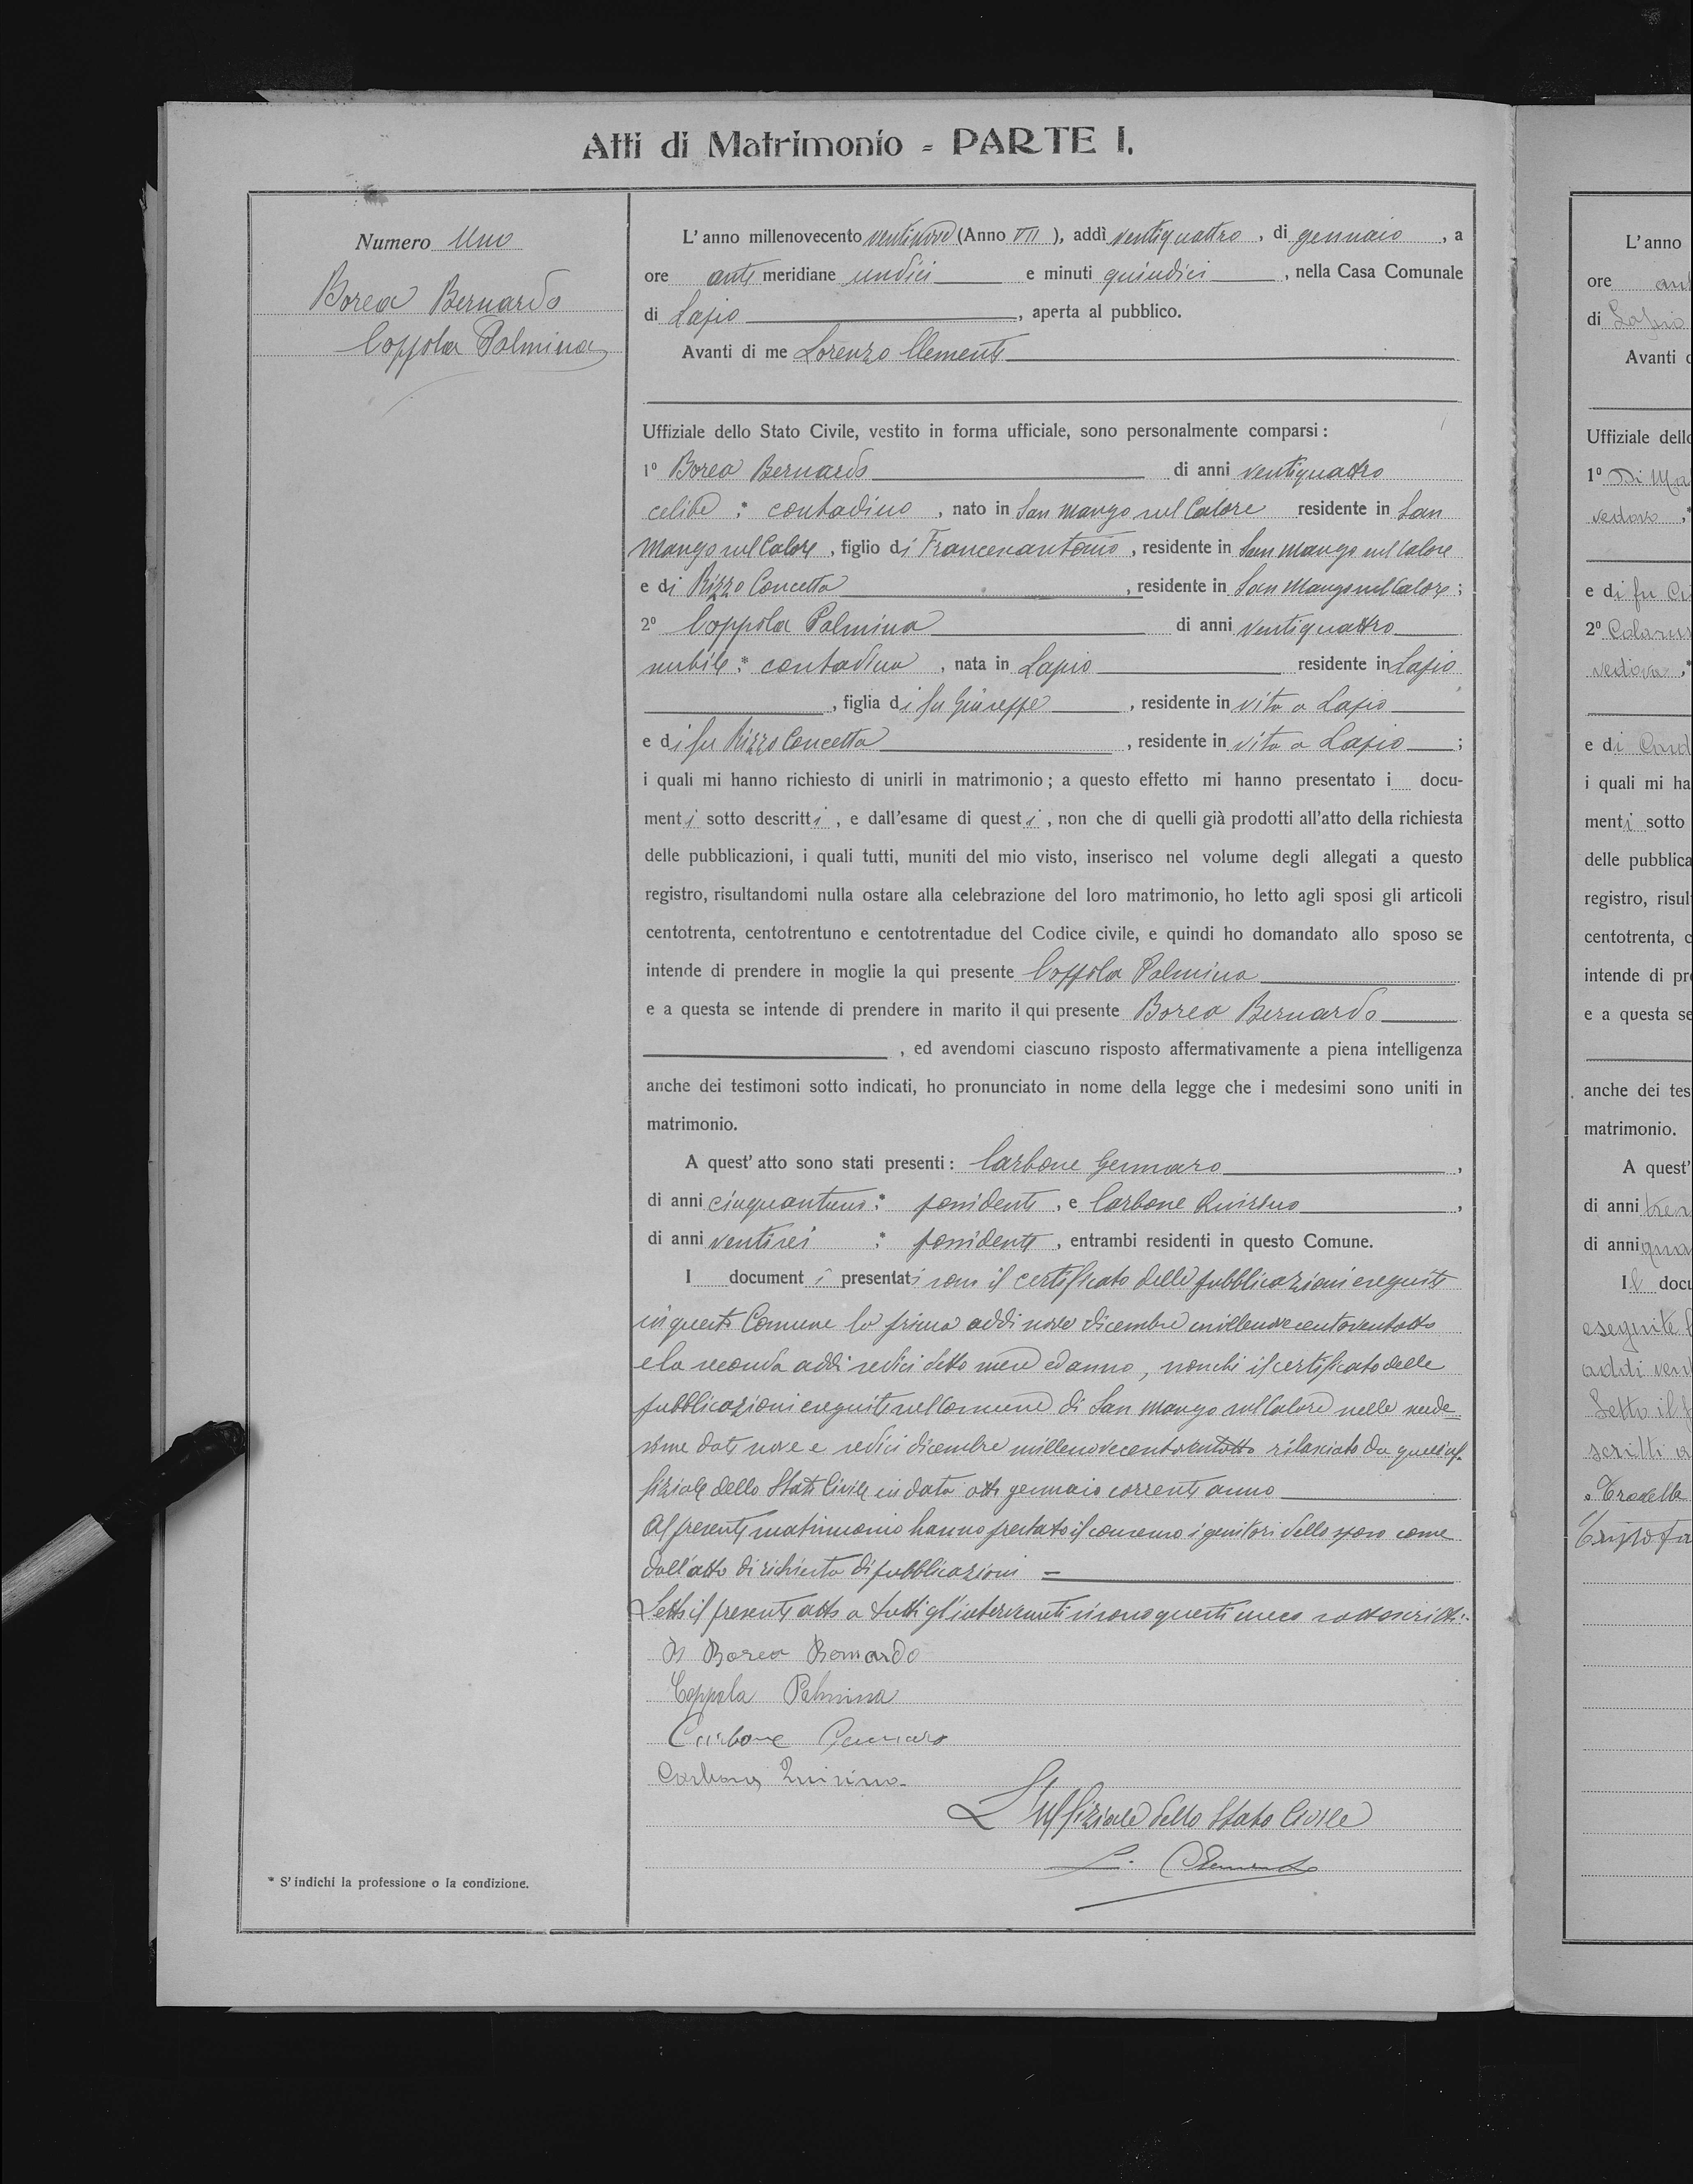 Atti di Matrimonio = PARTE I.
Numero Uno
Borea Bernardo
Coppola Palmina
L'anno millenovecento ventinove (Anno VII), addì ventiquattro, di gennaio, a
ore anti meridiane undici e minuti quindici, nella Casa Comunale
di Lapio, aperta al pubblico.
Avanti di me Lorenzo Clemente
Uffiziale dello Stato Civile, vestito in forma ufficiale, sono personalmente comparsi:
1º Borea Bernardo di anni ventiquattro
celibe :* contadino, nato in San Mango sul Calore residente in San
Mango sul Calore, figlio di Francescantonio, residente in San Mango sul Calore
e di Rizzo Concetta, residente in San Mango sul Calore;
2º Coppola Palmina di anni ventiquattro
nubile :* contadina, nata in Lapio residente in Lapio
, figlia di fu Giuseppe, residente in vita a Lapio
e di fu Rizzo Concetta, residente in vita a Lapio;
i quali mi hanno richiesto di unirli in matrimonio; a questo effetto mi hanno presentato i docu-
menti sotto descritti, e dall'esame di questi, non che di quelli già prodotti all'atto della richiesta
delle pubblicazioni, i quali tutti, muniti del mio visto, inserisco nel volume degli allegati a questo
registro, risultandomi nulla ostare alla celebrazione del loro matrimonio, ho letto agli sposi gli articoli
centotrenta, centotrentuno e centotrentadue del Codice civile, e quindi ho domandato allo sposo se
intende di prendere in moglie la qui presente Coppola Palmina
e a questa se intende di prendere in marito il qui presente Borea Bernardo
, ed avendomi ciascuno risposto affermativamente a piena intelligenza
anche dei testimoni sotto indicati, ho pronunciato in nome della legge che i medesimi sono uniti in
matrimonio.
A quest'atto sono stati presenti: Carbone Gennaro,
di anni cinquantuno :* possidente, e Carbone Quirino,
di anni ventisei :* possidente, entrambi residenti in questo Comune.
I documenti presentati sono il certificato delle pubblicazioni eseguite
in questo Comune la prima addì nove dicembre millenovecentoventotto
e la seconda addì sedici detto mese ed anno, nonchè il certificato delle
pubblicazioni eseguite nel Comune di San Mango sul Calore nelle mede
sime date nove e sedici dicembre millenovecentoventotto rilasciato da quell'uf-
fiziale dello Stato Civile in data otto gennaio corrente anno
Al presente matrimonio hanno prestato il consenso i genitori dello sposo come
dall'atto di richiesta di pubblicazioni =
Letto il presente atto a tutti gl'intervenuti si sono questi meco sottoscritti:-
Borea Bernardo
Coppola Palmina
Carbone Gennaro
Carbone Quirino
L'Uffiziale dello Stato Civile
L. Clemente
* S'indichi la professione o la condizione.
L'anno
ore
di Lapio
Avanti
Uffiziale dello
1º Di Ma
vedovo
e di fu
2º
vedova
e di
i quali mi ha
menti sotto
delle pubblica
registro, risul
centotrenta, c
intende di pre
e a questa se
anche dei tes
matrimonio.
A quest'
di anni
di anni
Il docu
eseguite
addì
Letto il
scritti